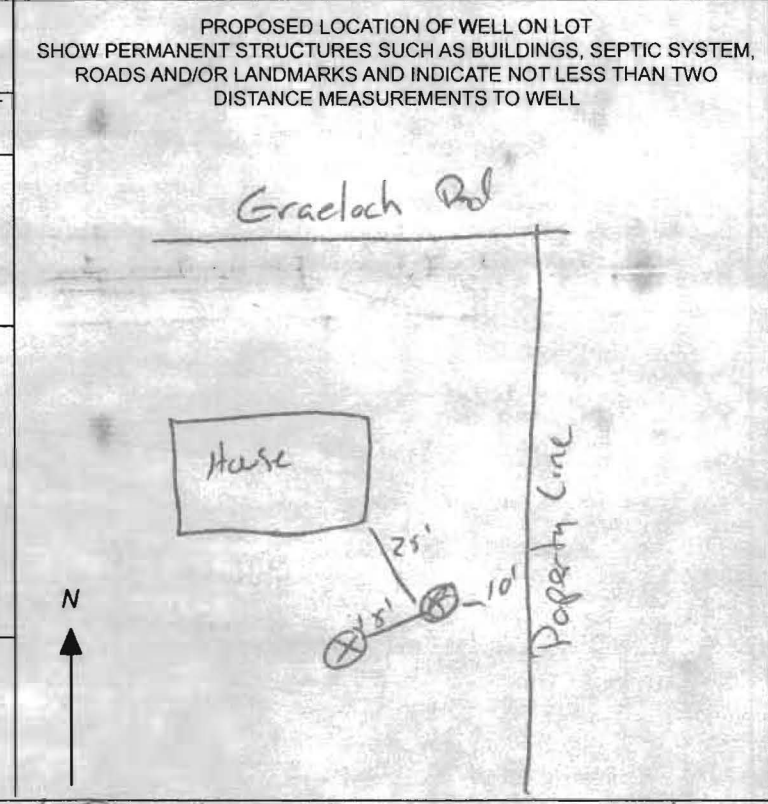 PROPOSED LOCATION OF WELL ON LOT
SHOW PERMANENT STRUCTURES SUCH AS BUILDINGS, SEPTIC SYSTEM,
ROADS AND/OR LANDMARKS AND INDICATE NOT LESS THAN TWO
DISTANCE MEASUREMENTS TO WELL
Graeloch Rd
House
Poperty Line
25'
10'
N